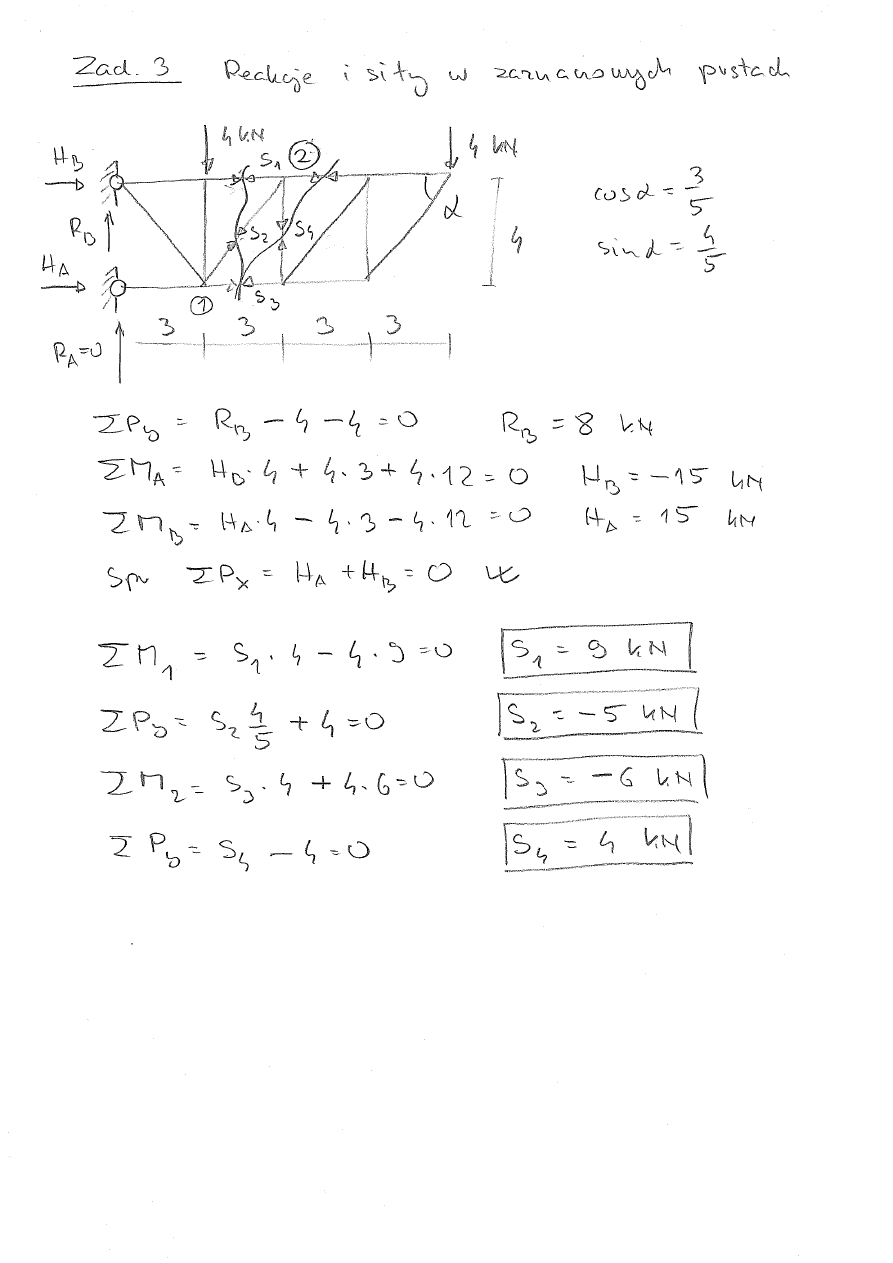 Zad. 3 Reakcje i siły w zaznaczonych prętach
4 kN
4 kN
H_B
S₁ ②
α
cos α = 3/5
R_B
S₂ S₄
4
sin α = 4/5
H_A
① S₃
3 3 3 3
R_A=0
ΣP_y = R_B − 4 − 4 = 0 R_B = 8 kN
ΣM_A = H_B·4 + 4·3 + 4·12 = 0 H_B = −15 kN
ΣM_B = H_A·4 − 4·3 − 4·12 = 0 H_A = 15 kN
Spr ΣP_x = H_A + H_B = 0
ΣM₁ = S₁·4 − 4·9 = 0 S₁ = 9 kN
ΣP_y = S₂ 4/5 + 4 = 0 S₂ = −5 kN
ΣM₂ = S₃·4 + 4·6 = 0 S₃ = −6 kN
ΣP_y = S₄ − 4 = 0 S₄ = 4 kN